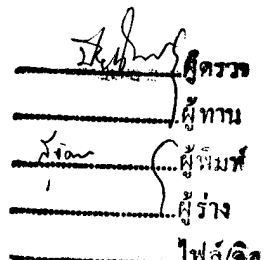 ผู้ตรวจ
ผู้ทาน
ผู้พิมพ์
ผู้ร่าง
ไฟล์/ดิส